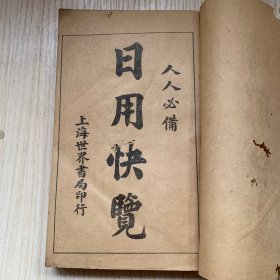 人人必備
日用快覽
上海世界書局印行